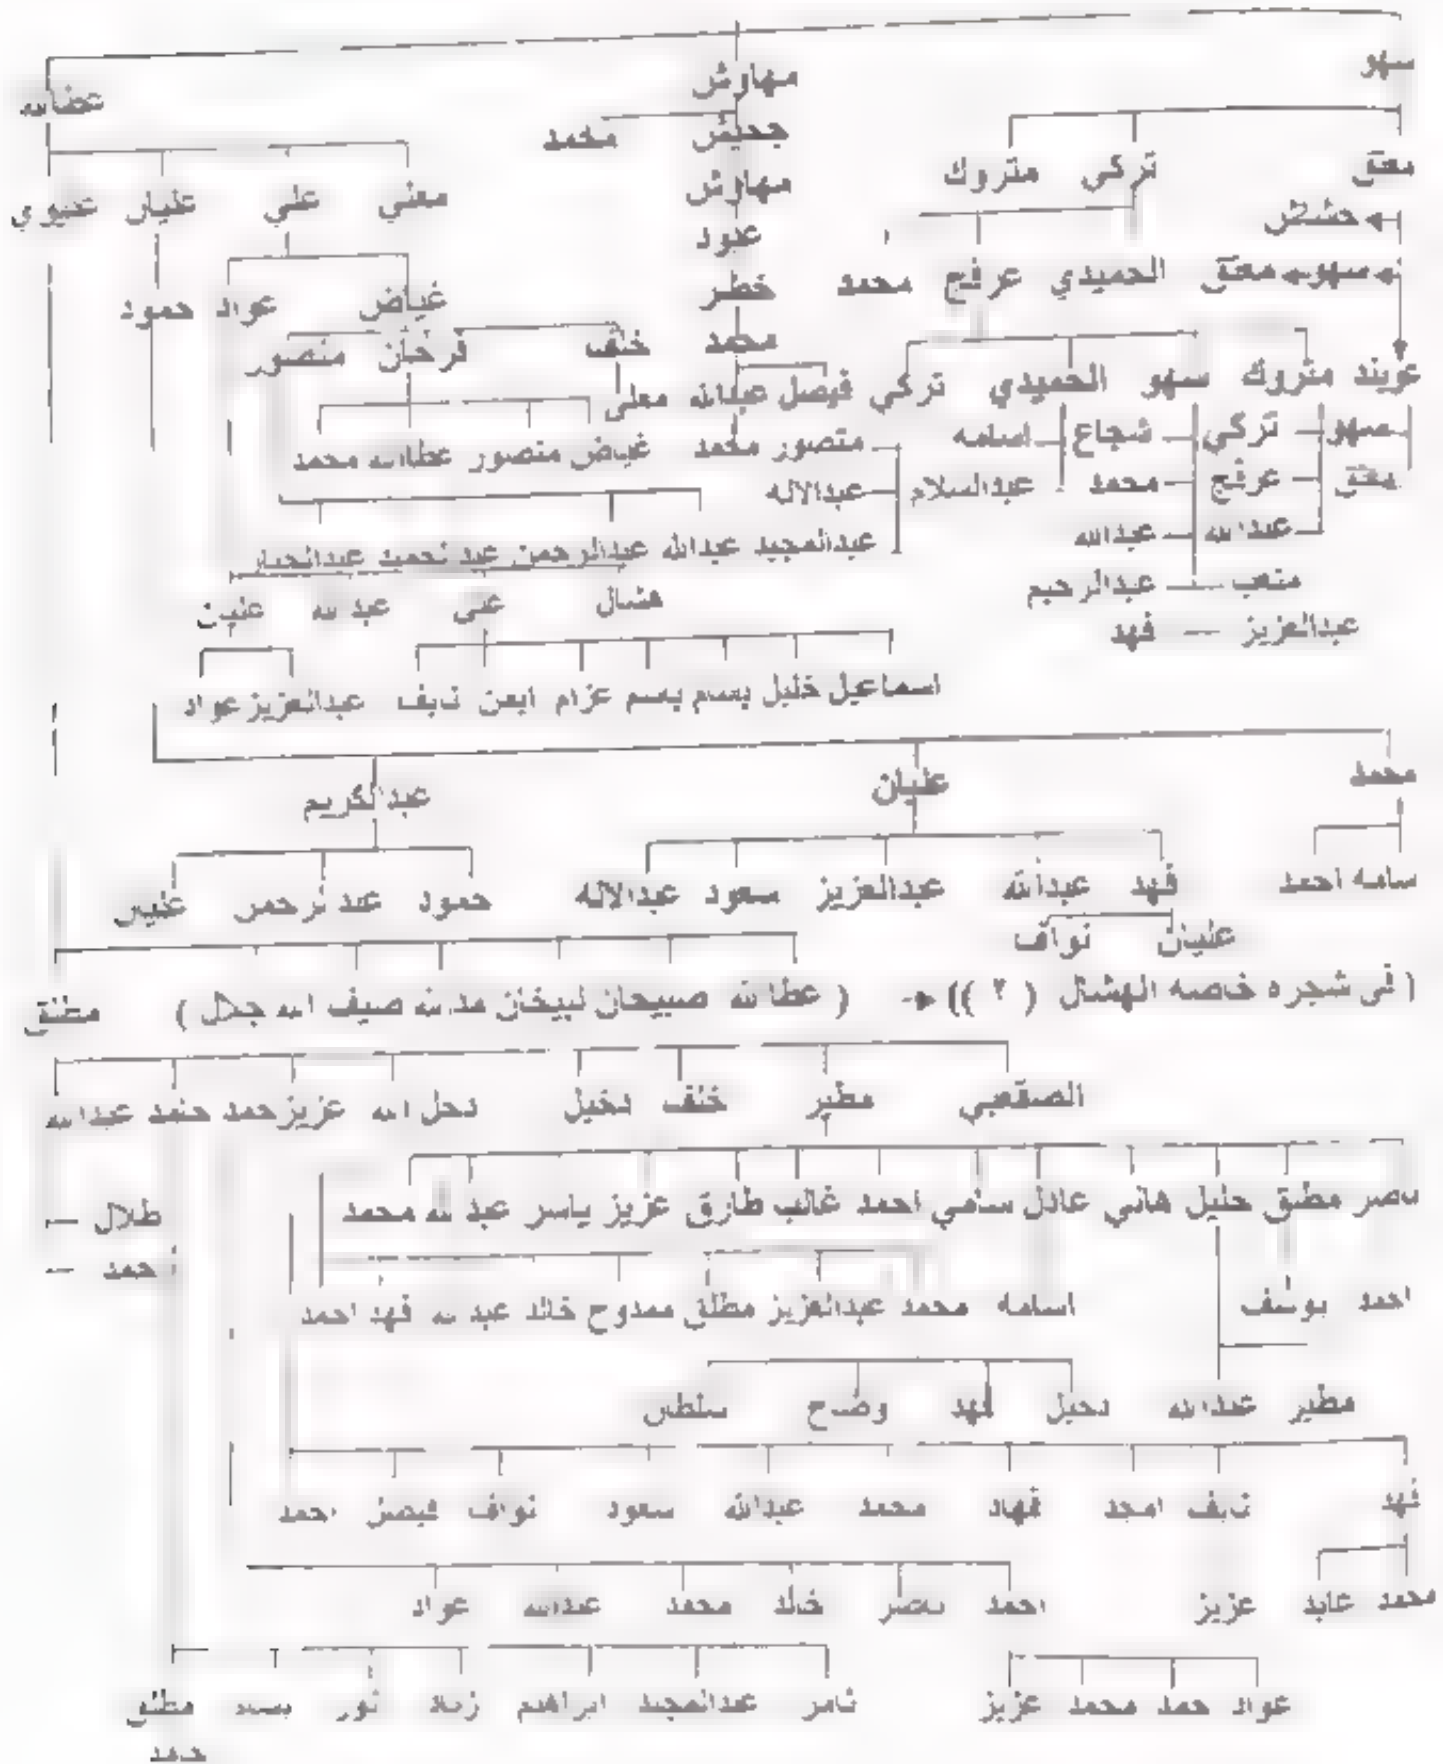 سهو مهاوش عضا الله
جحيش محمد
معتق تركي متروك مهاوش معلي علي عليان عليوي
حشاش عنود
سهو معتق الحميدي عرفج محمد خطر غياض عواد حمود
محمد خلف فرحان منصور
عويند متروك سهو الحميدي تركي فيصل عبدالله معلي
سهو تركي شجاع اسامه منصور محمد غياض منصور عطاالله محمد
معتق عرفج محمد عبدالسلام عبدالاله
عبدالله عبدالله عبدالمجيد عبدالله عبدالرحمن عبدالحميد
متعب عبدالرحيم هشال علي عبدالله عليان
عبدالعزيز فهد
اسماعيل خليل بسام باسم عزام ايمن نايف عبدالعزيز عواد
محمد عليان عبدالكريم
سامه احمد فهد عبدالله عبدالعزيز سعود عبدالاله حمود عبدالرحمن عليان
عليان نواف
( في شجره خاصه الهشال ( ٢ )) ( عطا لله صبيحان لبيخان مدالله صيف الله جلال ) مطلق
الصقعبي مطير خلف دخيل دخل الله عزيز حمد حامد عبدالله
ناصر مطلق خليل هاني عادل سامي احمد غالب طارق عزيز ياسر عبدالله محمد طلال
حمد
احمد يوسف اسامه محمد عبدالعزيز مطلق ممدوح خالد عبدالله فهد احمد
مطير عبدالله دخيل فهد وضاح سلطان
فهد نايف امجد فهاد محمد عبدالله سعود نواف فيصل احمد
محمد عابد عزيز احمد ناصر خالد محمد عبدالله عواد
عواد حمد محمد عزيز ثامر عبدالمجيد ابراهيم زياد نور مطلق
حمد